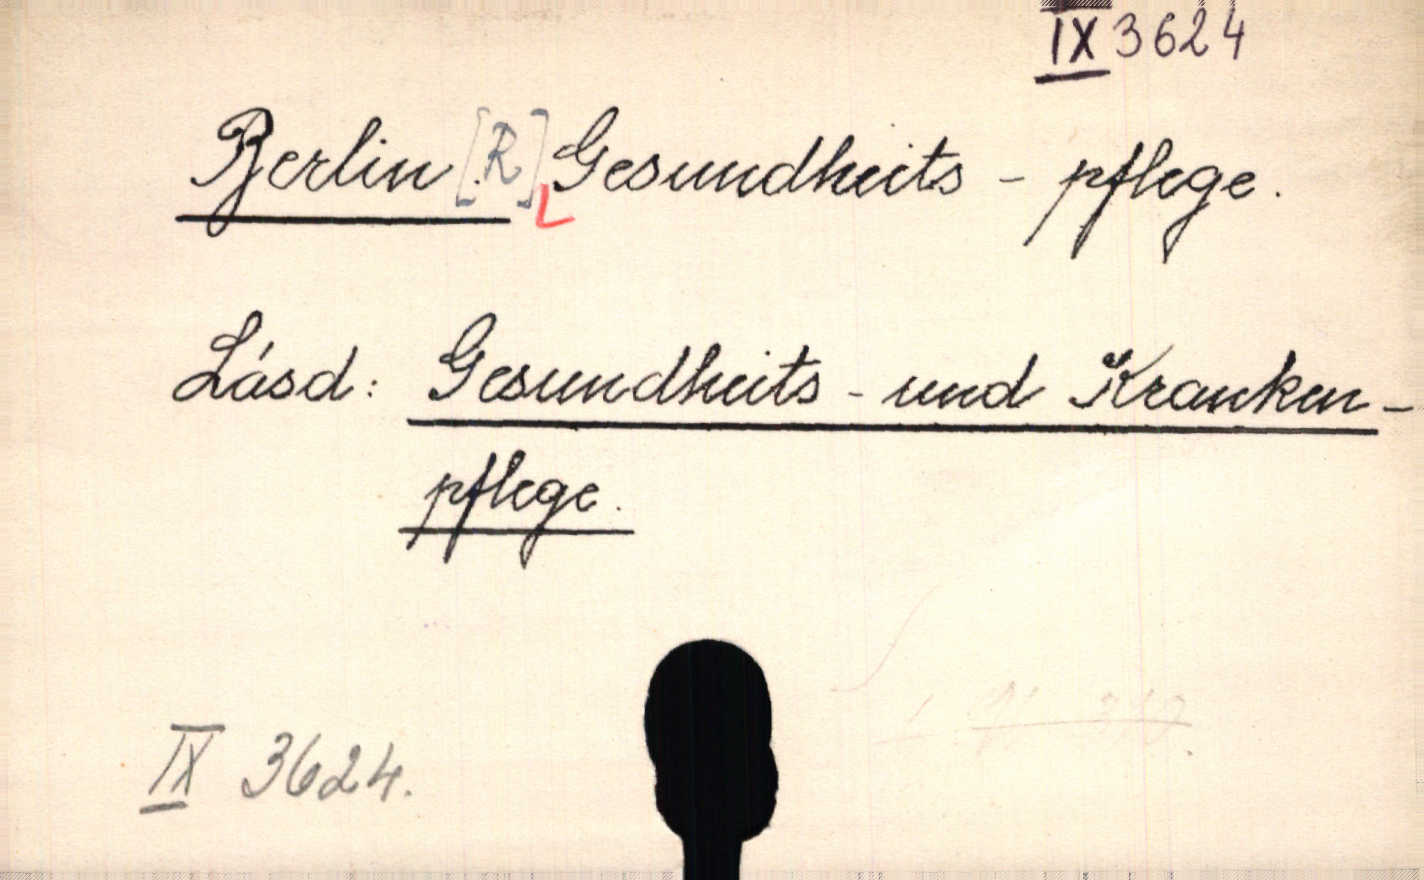 IX 3624
Berlin [R.] Gesundheits - pflege.
Lásd: Gesundheits - und Kranken -
pflege.
IX 3624.